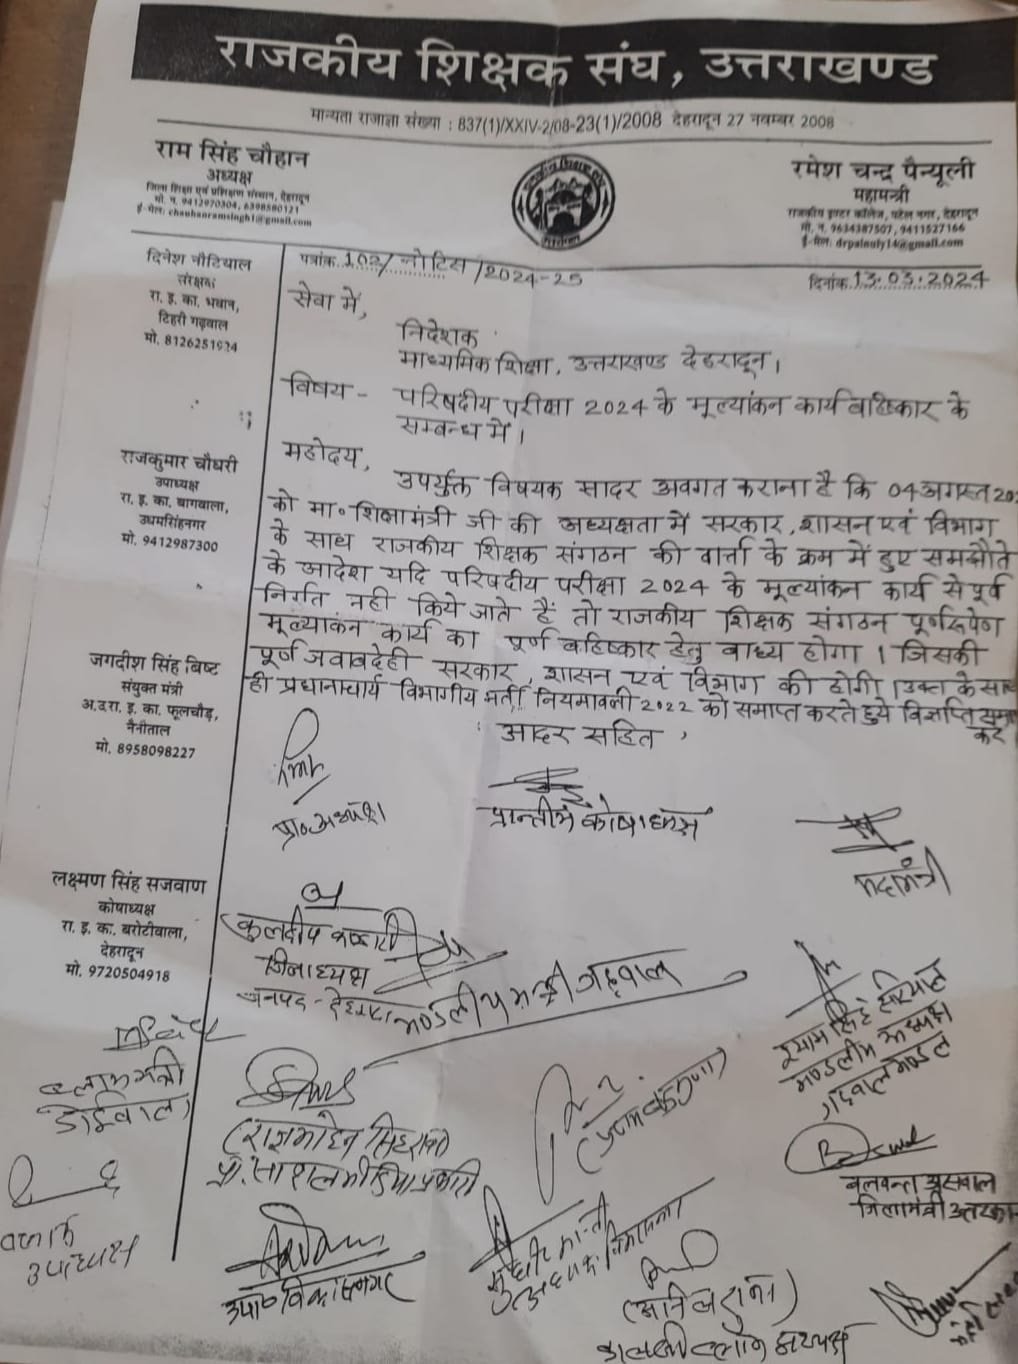 राजकीय शिक्षक संघ, उत्तराखण्ड
मान्यता राजाज्ञा संख्या : 837(1)/XXIV-2/08-23(1)/2008 देहरादून 27 नवम्बर 2008
राम सिंह चौहान
अध्यक्ष
जिला शिक्षा एवं प्रशिक्षण संस्थान, देहरादून
मो. न. 9412970304, 6398580121
ई-मेल: chauhanramsingh1@gmail.com
रमेश चन्द्र पैन्यूली
महामन्त्री
राजकीय इण्टर कॉलेज, पटेल नगर, देहरादून
मो. न. 9634387507, 9411527166
ई-मेल: drpainuly14@gmail.com
दिनेश नौटियाल
संरक्षक
रा. इ. का. भवान,
टिहरी गढ़वाल
मो. 8126251924
राजकुमार चौधरी
उपाध्यक्ष
रा. इ. का. बागवाला,
उधमसिंहनगर
मो. 9412987300
जगदीश सिंह बिष्ट
संयुक्त मंत्री
अ.उ.रा. इ. का. फूलचौड़,
नैनीताल
मो. 8958098227
लक्ष्मण सिंह सजवाण
कोषाध्यक्ष
रा. इ. का. बरोटीवाला,
देहरादून
मो. 9720504918
पत्रांक 102/नोटिस/2024-25
दिनांक 13.03.2024
सेवा में,
निदेशक
माध्यमिक शिक्षा, उत्तराखण्ड देहरादून।
विषय - परिषदीय परीक्षा 2024 के मूल्यांकन कार्य बहिष्कार के
सम्बन्ध में।
महोदय,
उपर्युक्त विषयक सादर अवगत कराना है कि 04 अगस्त
को मा० शिक्षामंत्री जी की अध्यक्षता में सरकार, शासन एवं विभाग
के साथ राजकीय शिक्षक संगठन की वार्ता के क्रम में हुए समझौते
के आदेश यदि परिषदीय परीक्षा 2024 के मूल्यांकन कार्य से पूर्व
निर्गत नही किये जाते हैं तो राजकीय शिक्षक संगठन पूर्णरूपेण
मूल्यांकन कार्य का पूर्ण बहिष्कार हेतु बाध्य होगा। जिसकी
पूर्ण जवाबदेही सरकार, शासन एवं विभाग की होगी। उक्त के साथ
ही प्रधानाचार्य विभागीय भर्ती नियमावली 2022 को समाप्त करते हुये विज्ञप्ति
करें
आदर सहित,
प्रा० अध्यक्ष
प्रान्तीय कोषाध्यक्ष
महामंत्री
कुलदीप
जिलाध्यक्ष
जनपद - देहरादून
मण्डलीय मन्त्री गढ़वाल
श्याम सिंह
मण्डलीय अध्यक्ष
गढ़वाल मण्डल
ब्लाक मंत्री
डोईवाला
प्रा. सोशल मीडिया प्रभारी
बलवन्त असवाल
जिलामंत्री
ब्लाक
उपाध्यक्ष
विकासनगर
(अनिल राणा)
कालसी ब्लॉक अध्यक्ष